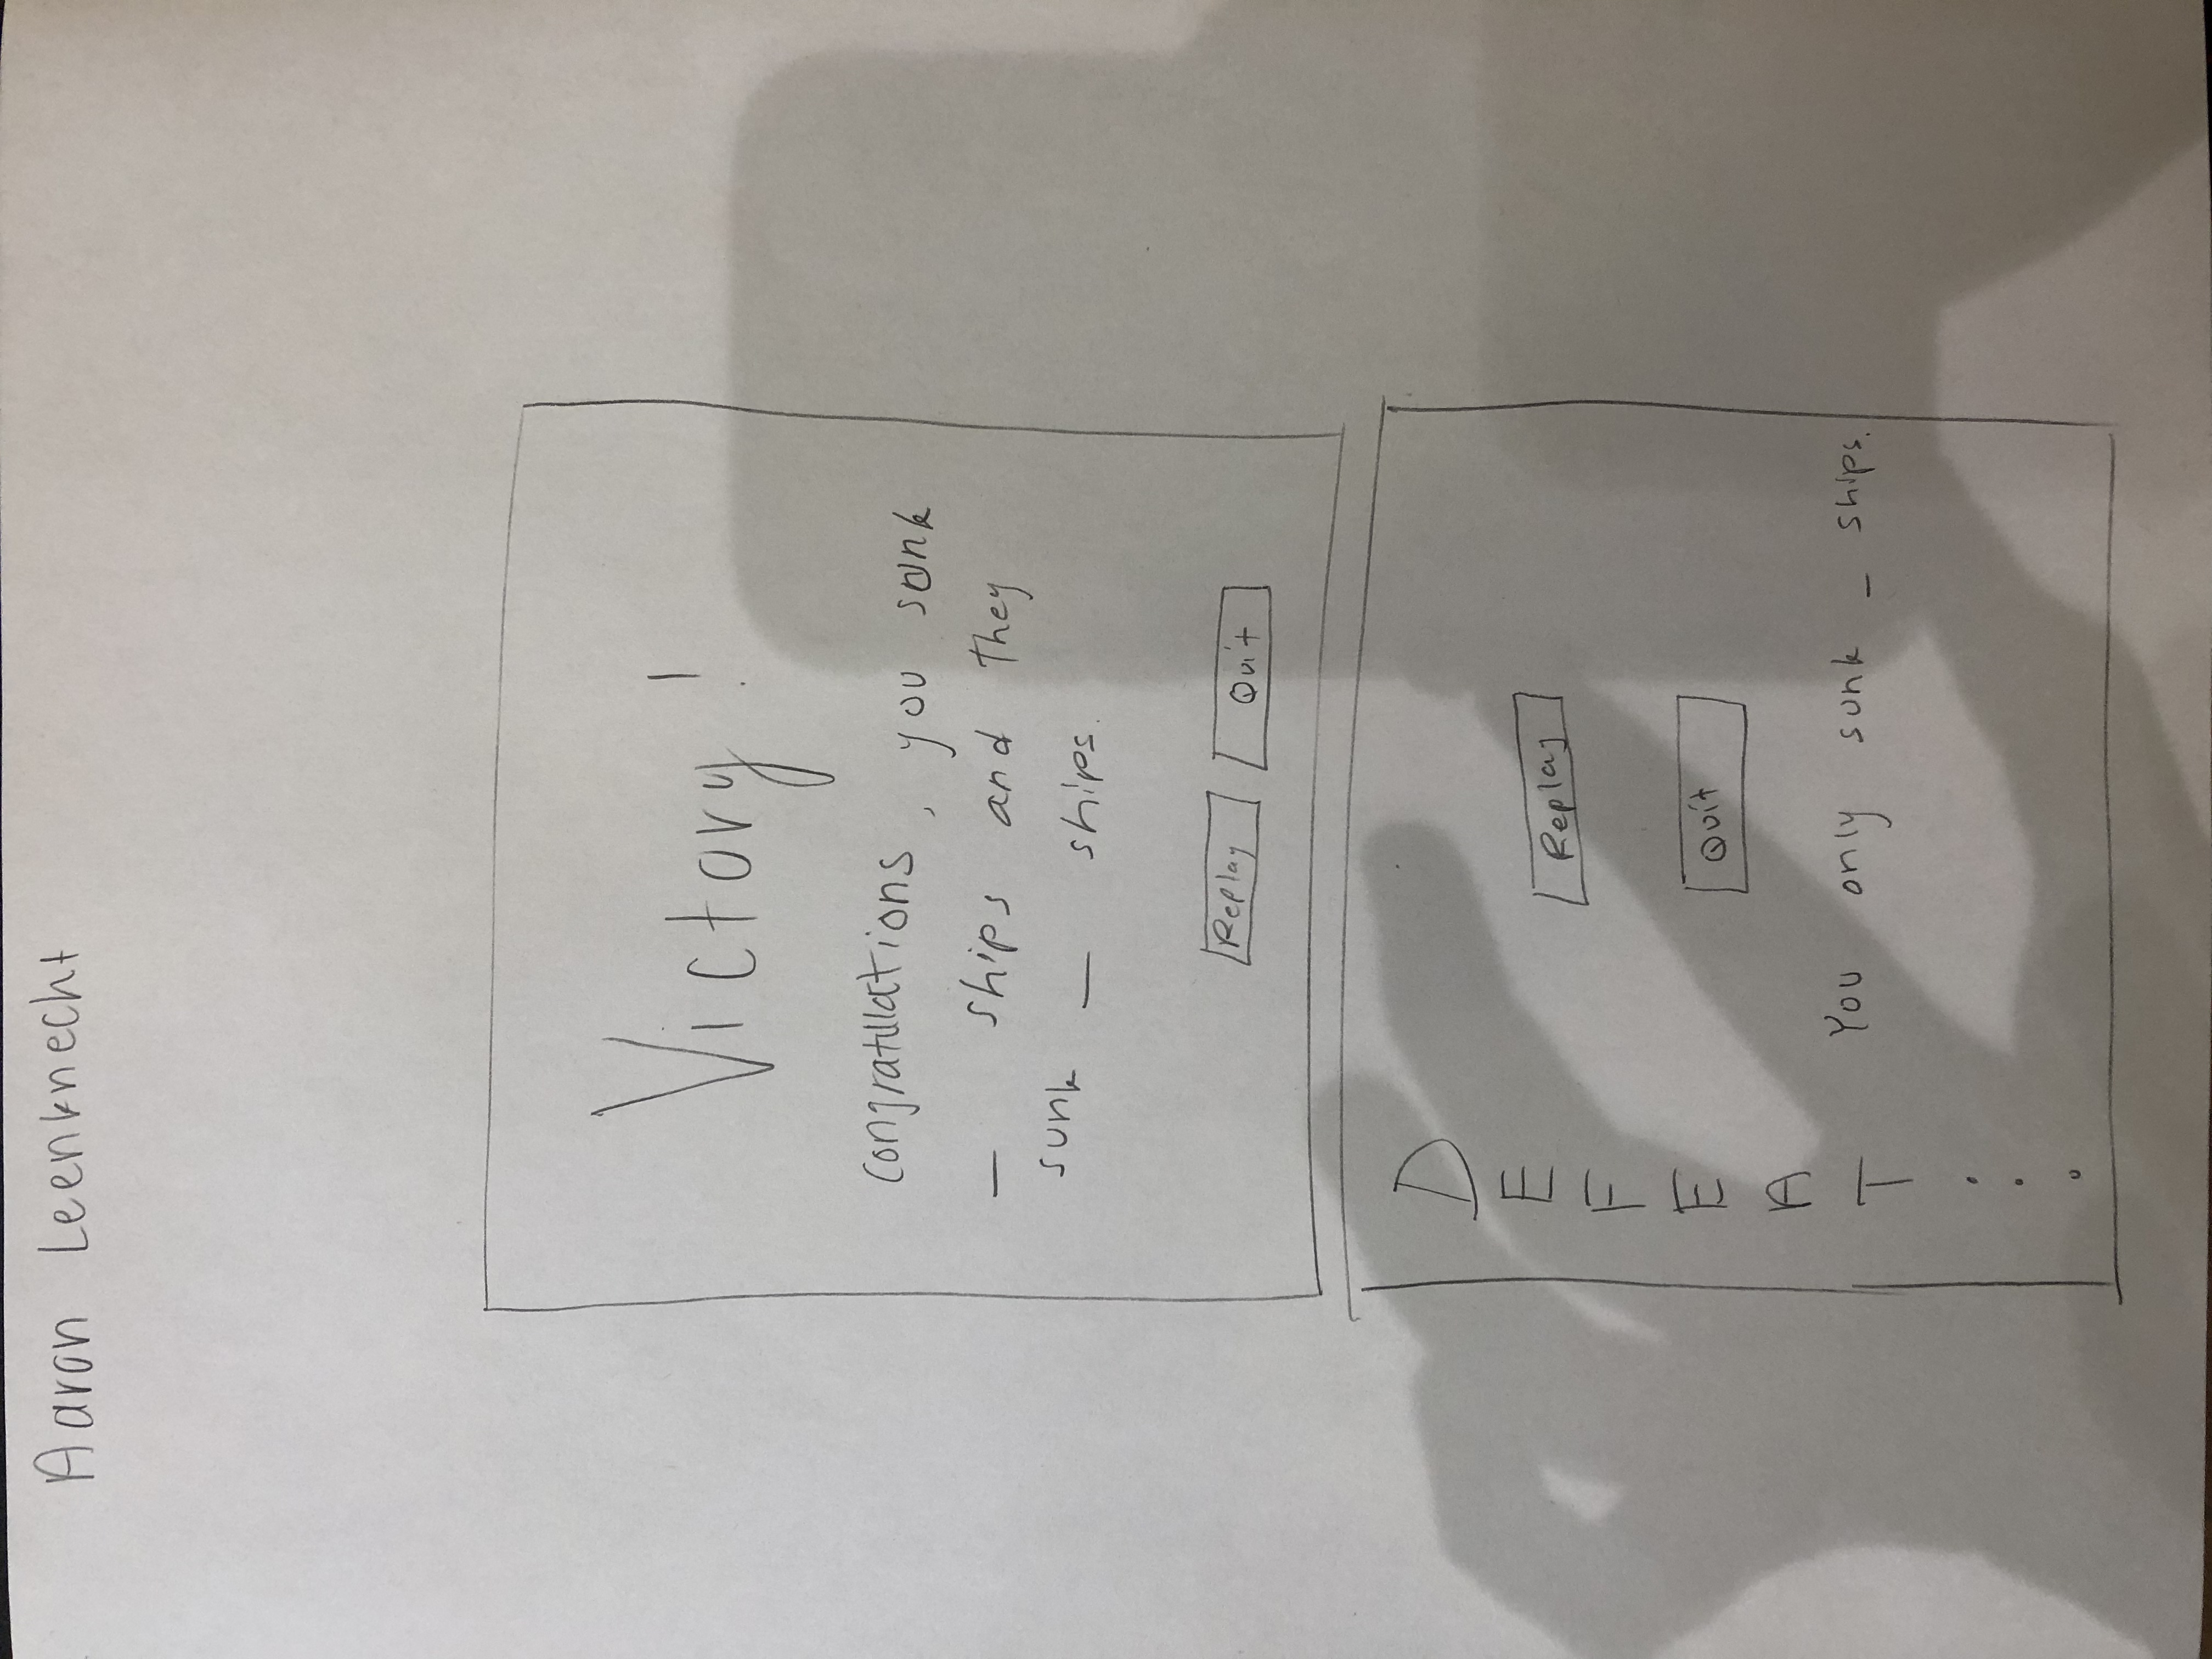 Aaron Leenknecht
Victory!
Congratulations, you sunk
_ ships and they
sunk _ ships.
Replay Quit
D
E
F
E
A
T
.
.
.
Replay
Quit
You only sunk _ ships.